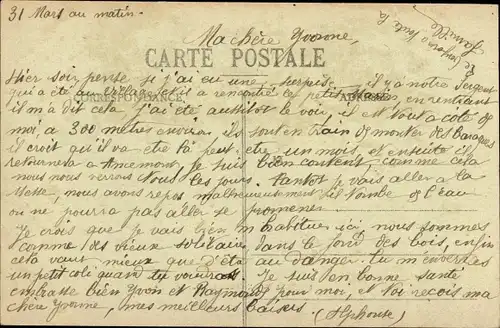 31 Mars au matin.
Ma chère Yvonne,
toute la
famille
CARTE POSTALE
CORRESPONDANCE
ADRESSE
Hier soir pense si j'ai eu une surprise il y a notre sergent
qui a été au village et il a rencontré le petit en rentrant
il m'a dit cela j'ai été aussitôt le voir, il est tous a coté de
moi, a 300 mètres environ. ils sont en train de monter des baraques
il croit qu'il va etre là peut etre un mois, et ensuite il
retournera a Je suis bien content comme cela
nous nous verrons tous les jours. Tantot je vais aller a la
Messe, nous avons repos malheureusement il tombe de l'eau
on ne pourra pas aller se promener
Je crois que je vais bien m'habituer ici, nous sommes
comme des vieux solitaires dans le fond des bois, enfin
cela vaut mieux que d'etre au danger. tu m'enverras
un petit coli quand tu voudras. Je suis en bonne santé
embrasse bien Yvon et Raymond pour moi, et toi reçois ma
chère Yvonne, mes meilleurs baisers (Alphonse)